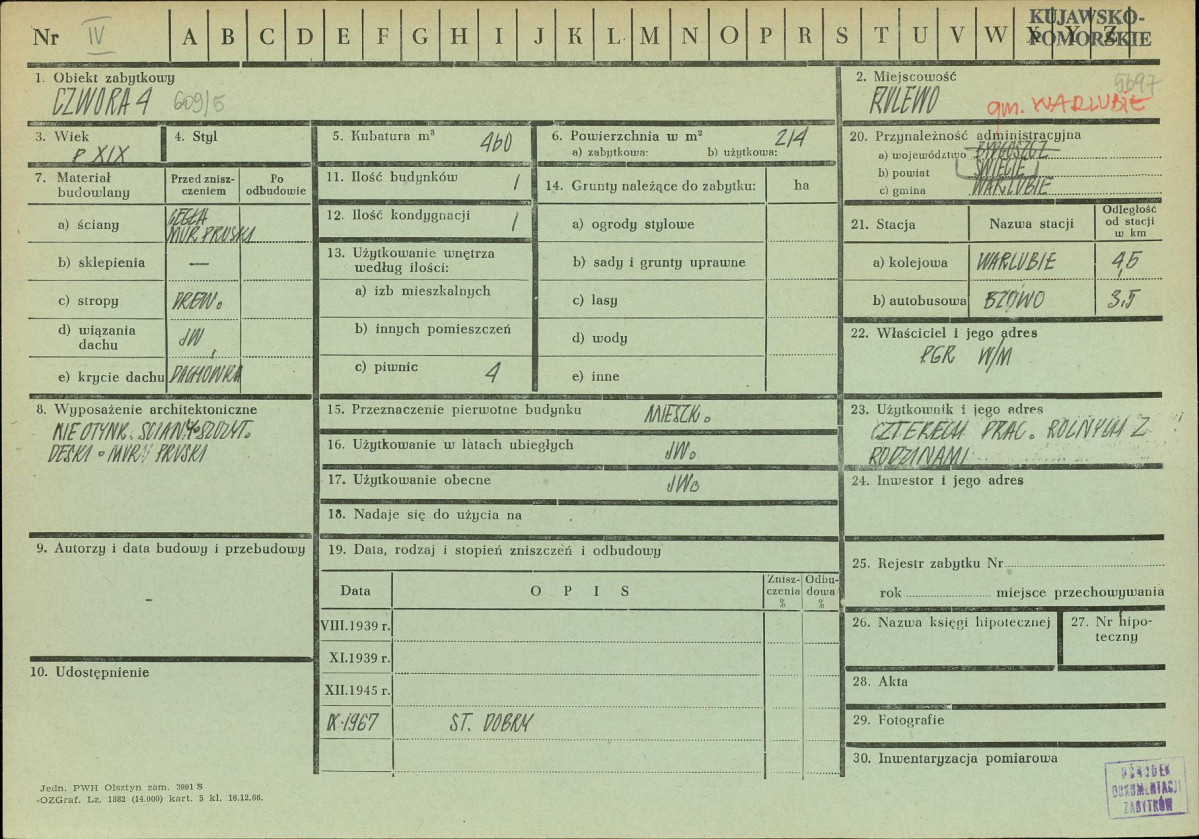 Nr IV A B C D E F G H I J K L M N O P R S T U V W X Y Z
KUJAWSKO-
POMORSKIE
1. Obiekt zabytkowy
CZWORA4 609/5
2. Miejscowość
RULEWO gm. WARLUBIE
3. Wiek
P XIX
4. Styl
5. Kubatura m³ 460
6. Powierzchnia w m² 214
a) zabytkowa: b) użytkowa:
20. Przynależność administracyjna
a) województwo BYDGOSZCZ
b) powiat ŚWIECIE
c) gmina WARLUBIE
7. Materiał
budowlany
Przed znisz-
czeniem
Po
odbudowie
a) ściany CEGŁA
MUR PRUSKI
b) sklepienia —
c) stropy DREW.
d) wiązania
dachu JW
e) krycie dachu DACHÓWKA
11. Ilość budynków 1
12. Ilość kondygnacji 1
13. Użytkowanie wnętrza
według ilości:
a) izb mieszkalnych
b) innych pomieszczeń
c) piwnic 4
14. Grunty należące do zabytku: ha
a) ogrody stylowe
b) sady i grunty uprawne
c) lasy
d) wody
e) inne
21. Stacja Nazwa stacji
Odległość
od stacji
w km
a) kolejowa WARLUBIE 4,5
b) autobusowa BZOWO 3,5
22. Właściciel i jego adres
PGR W/M
8. Wyposażenie architektoniczne
NIE OTYNK. SCIANY SZCZYT.
DESKI MUR PRUSKI
15. Przeznaczenie pierwotne budynku MIESZK.
16. Użytkowanie w latach ubiegłych JW.
17. Użytkowanie obecne JW.
18. Nadaje się do użycia na
23. Użytkownik i jego adres
CZTERECH PRAC. ROLNYCH Z
RODZINAMI
24. Inwestor i jego adres
9. Autorzy i data budowy i przebudowy
-
19. Data, rodzaj i stopień zniszczeń i odbudowy
Data OPIS
Znisz-
czenia
%
Odbu-
dowa
%
VIII.1939 r.
XI.1939 r.
XII.1945 r.
IX.1967 ST. DOBRY
25. Rejestr zabytku Nr
rok miejsce przechowywania
26. Nazwa księgi hipotecznej
27. Nr hipo-
teczny
10. Udostępnienie
28. Akta
29. Fotografie
30. Inwentaryzacja pomiarowa
Jedn. PWH Olsztyn zam. 3991 S
-OZGraf. Lz. 1882 (14.000) kart. 5 kl. 16.12.66.
OŚRODEK
DOKUMENTACJI
ZABYTKÓW